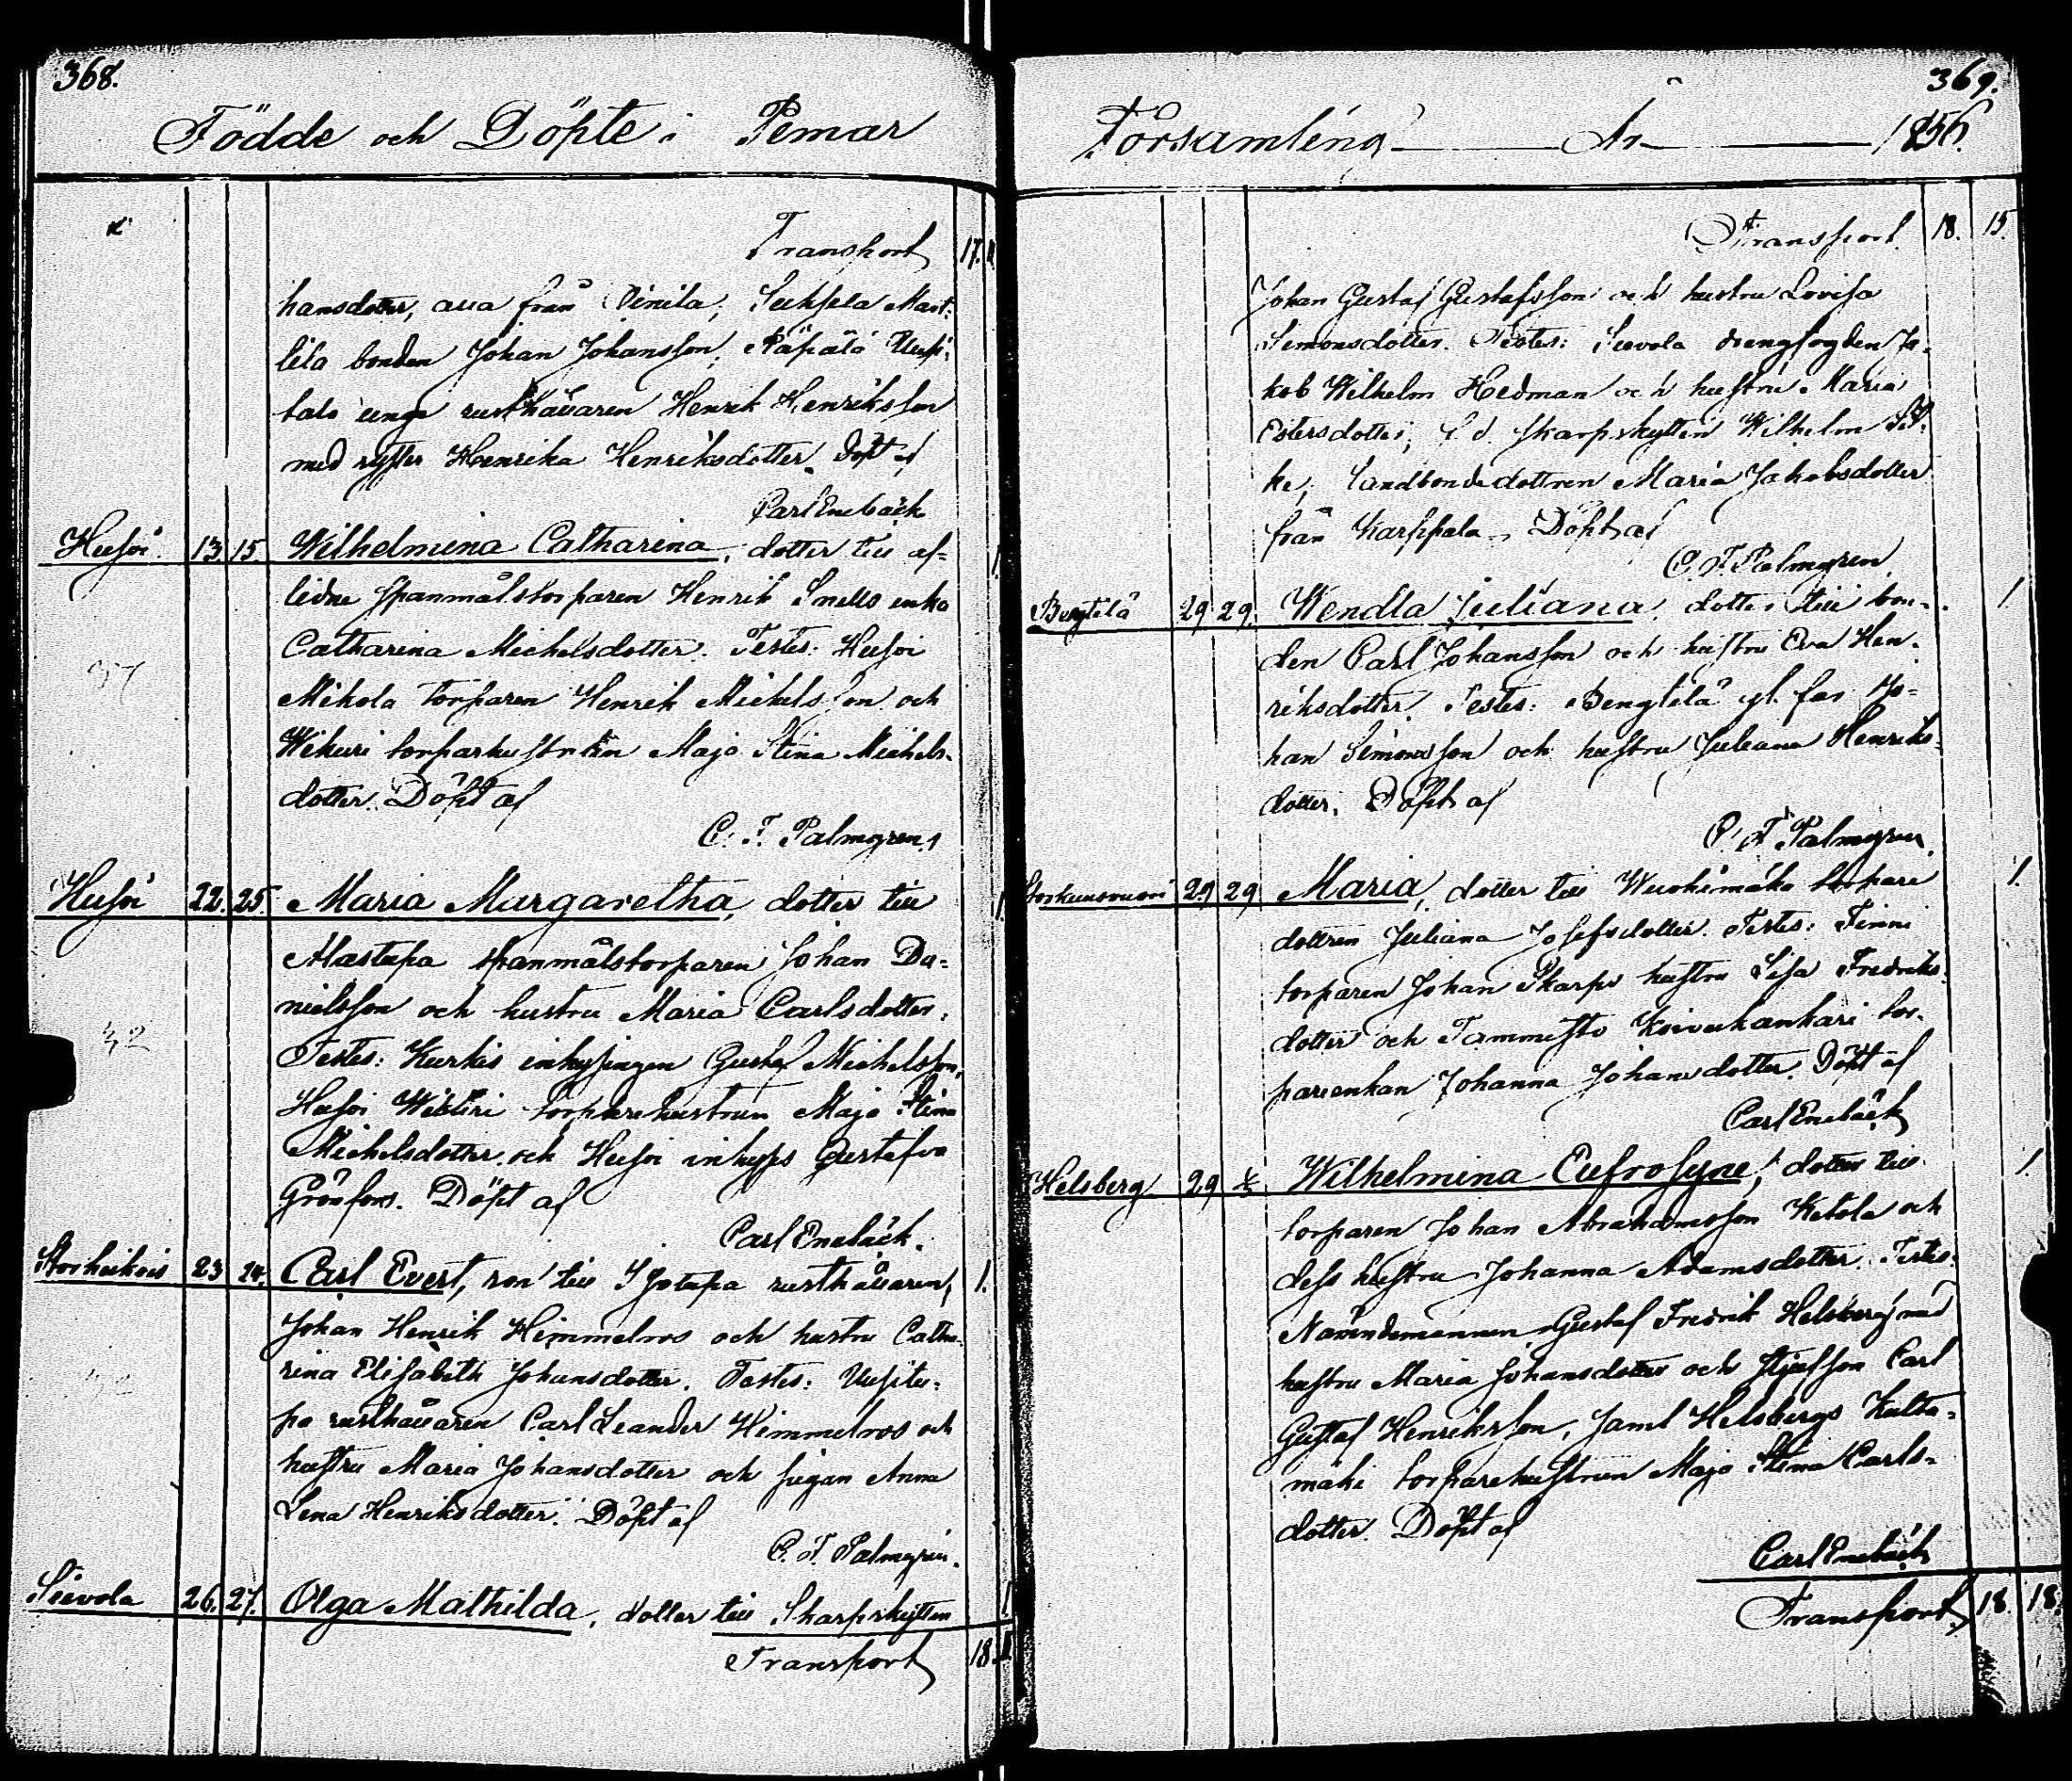 368.
Födde och Döpte i Pemar
Transport 17.
hansdotter, alla från Vinila;
lila bonden Johan Johansson,
talo unga rusthållaren Henrik Henriksson
med syster Henrika Henriksdotter. Döpt af
Carl Enebäck
13. 15. Wilhelmina Catharina, dotter till af-
lidne spanmålstorparen Henrik Snells enka
Catharina Michelsdotter. Testes:
Mikola torparen Henrik Michelsson och
torparhustrun Maja Stina Michels-
dotter. Döpt af
C. F. Palmgren.
22. 25. Maria Margaretha, dotter till 1.
spanmålstorparen Johan Da-
nielsson och hustru Maria Carlsdotter.
Testes: Kurkis inhysingen Gustaf Michelsson,
torparehustrun Maja Stina
Michelsdotter och inhyses Gustafva
Grönfors. Döpt af
Carl Enebäck.
23 24. Carl Evert, son till rusthållaren 1.
Johan Henrik Himmelroos och hustru Catha-
rina Elisabeth Johansdotter. Testes: Uusitu-
pa rusthållaren Carl Leander Himmelroos och
hustru Maria Johansdotter och pigan Anna
Lena Henriksdotter. Döpt af
C. F. Palmgren.
Sievola 26. 27. Olga Mathilda, dotter till Skarpskytten 1
Transport 18.
369.
Församling År 1856.
Transport 18. 15.
Johan Gustaf Gustafsson och hustru Lovisa
Simonsdotter. Testes: Sievola drengfogden Ja-
kob Wilhelm Hedman och hustru Maria
skarpskytten Wilhelm
landbondedottren Maria Jakobsdotter
från Karppala. Döpt af
C. F. Palmgren.
Bengtilä 29 29. Wendla Juliana, dotter till bon- 1.
den Carl Johansson och hustru Eva Hen-
riksdotter. Testes: Bengtilä gl. far Jo-
han Simonsson och hustru Juliana Henriks-
dotter. Döpt af
C. F. Palmgren.
29 29 Maria, dotter till torpare 1.
dottren Juliana Josefsdotter. Testes:
torparen Johan Skarps hustru Lisa Fredriks-
dotter och Tammisto Koivukankari tor-
pareenkan Johanna Johansdotter. Döpt af
Carl Enebäck
Helsberg 29 Wilhelmina Eufrosyne, dotter till 1.
torparen Johan Abrahamsson Ketola och
dess hustru Johanna Adamsdotter. Testes:
Nämndemannen Gustaf Fredrik Helsberg med
hustru Maria Johansdotter och styfsson Carl
Gustaf Henriksson, samt Helsbergs Kulta-
mäki torparehustrun Maja Stina Carls-
dotter. Döpt af
Carl Enebäck
Transport 18. 18.